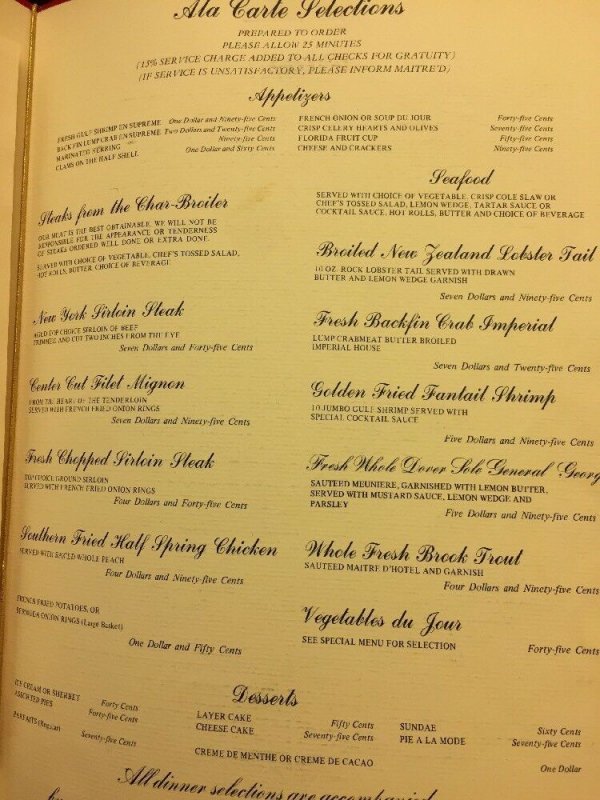 Ala Carte Selections
PREPARED TO ORDER
PLEASE ALLOW 25 MINUTES
(15% SERVICE CHARGE ADDED TO ALL CHECKS FOR GRATUITY)
(IF SERVICE IS UNSATISFACTORY, PLEASE INFORM MAITRE'D)
Appetizers
FRESH GULF SHRIMP EN SUPREME One Dollar and Ninety-five Cents
BACK FIN LUMP CRAB EN SUPREME Two Dollars and Twenty-five Cents
MARINATED HERRING Ninety-five Cents
CLAMS ON THE HALF SHELL One Dollar and Sixty Cents
FRENCH ONION OR SOUP DU JOUR Forty-five Cents
CRISP CELERY HEARTS AND OLIVES Seventy-five Cents
FLORIDA FRUIT CUP Fifty-five Cents
CHEESE AND CRACKERS Ninety-five Cents
Steaks from the Char-Broiler
OUR MEAT IS THE BEST OBTAINABLE. WE WILL NOT BE
RESPONSIBLE FOR THE APPEARANCE OR TENDERNESS
OF STEAKS ORDERED WELL DONE OR EXTRA DONE.
SERVED WITH CHOICE OF VEGETABLE, CHEF'S TOSSED SALAD,
HOT ROLLS, BUTTER, CHOICE OF BEVERAGE
New York Sirloin Steak
AGED TOP CHOICE SIRLOIN OF BEEF
TRIMMED AND CUT TWO INCHES FROM THE EYE
Seven Dollars and Forty-five Cents
Center Cut Filet Mignon
FROM THE HEART OF THE TENDERLOIN
SERVED WITH FRENCH FRIED ONION RINGS
Seven Dollars and Ninety-five Cents
Fresh Chopped Sirloin Steak
TOP CHOICE GROUND SIRLOIN
SERVED WITH FRENCH FRIED ONION RINGS
Four Dollars and Forty-five Cents
Southern Fried Half Spring Chicken
SERVED WITH SPICED WHOLE PEACH
Four Dollars and Ninety-five Cents
FRENCH FRIED POTATOES, OR
BERMUDA ONION RINGS (Large Basket)
One Dollar and Fifty Cents
Seafood
SERVED WITH CHOICE OF VEGETABLE, CRISP COLE SLAW OR
CHEF'S TOSSED SALAD, LEMON WEDGE, TARTAR SAUCE OR
COCKTAIL SAUCE, HOT ROLLS, BUTTER AND CHOICE OF BEVERAGE
Broiled New Zealand Lobster Tail
10 OZ. ROCK LOBSTER TAIL SERVED WITH DRAWN
BUTTER AND LEMON WEDGE GARNISH
Seven Dollars and Ninety-five Cents
Fresh Backfin Crab Imperial
LUMP CRABMEAT BUTTER BROILED
IMPERIAL HOUSE
Seven Dollars and Twenty-five Cents
Golden Fried Fantail Shrimp
10 JUMBO GULF SHRIMP SERVED WITH
SPECIAL COCKTAIL SAUCE
Five Dollars and Ninety-five Cents
Fresh Whole Dover Sole General Georg
SAUTEED MEUNIERE, GARNISHED WITH LEMON BUTTER,
SERVED WITH MUSTARD SAUCE, LEMON WEDGE AND
PARSLEY
Five Dollars and Ninety-five Cents
Whole Fresh Brook Trout
SAUTEED MAITRE D'HOTEL AND GARNISH
Four Dollars and Ninety-five Cents
Vegetables du Jour
SEE SPECIAL MENU FOR SELECTION Forty-five Cents
Desserts
ICE CREAM OR SHERBET Forty Cents
ASSORTED PIES Forty-five Cents
PARFAITS Seventy-five Cents
LAYER CAKE Fifty Cents
CHEESE CAKE Seventy-five Cents
SUNDAE Sixty Cents
PIE A LA MODE Seventy-five Cents
CREME DE MENTHE OR CREME DE CACAO One Dollar
All dinner selections are accompanied